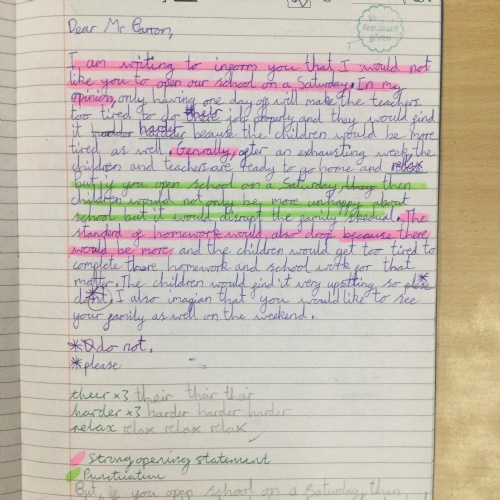 Dear Mr Barron,
feedback
given
I am writing to inform you that I would not
like you to open our school on a Saturday. In my
opinion, only having one day off will make the teachers
too tired to do their job properly and they would find
it harder becaase the children would be more
tired as well. Genually, after an exhausting week, the
children and teachers are ready to go home and relax
but if you open school on a Saturday, they then
children would not only be more unhappy about
school but it would disrupt the family shedual. The
standerd of homework would also drop because there
would be more and the children would get too tired to
complete there homework and school work for that
matter. The children would find it very upsetting so
don't. I also imagian that you would like to see
your family as well on the weekend.
* do not.
* please
their x3 their their their
harder x3 harder harder harder
relax relax relax relax
Strong opening statement
Punctuation
But, if you open school on a Saturday, then